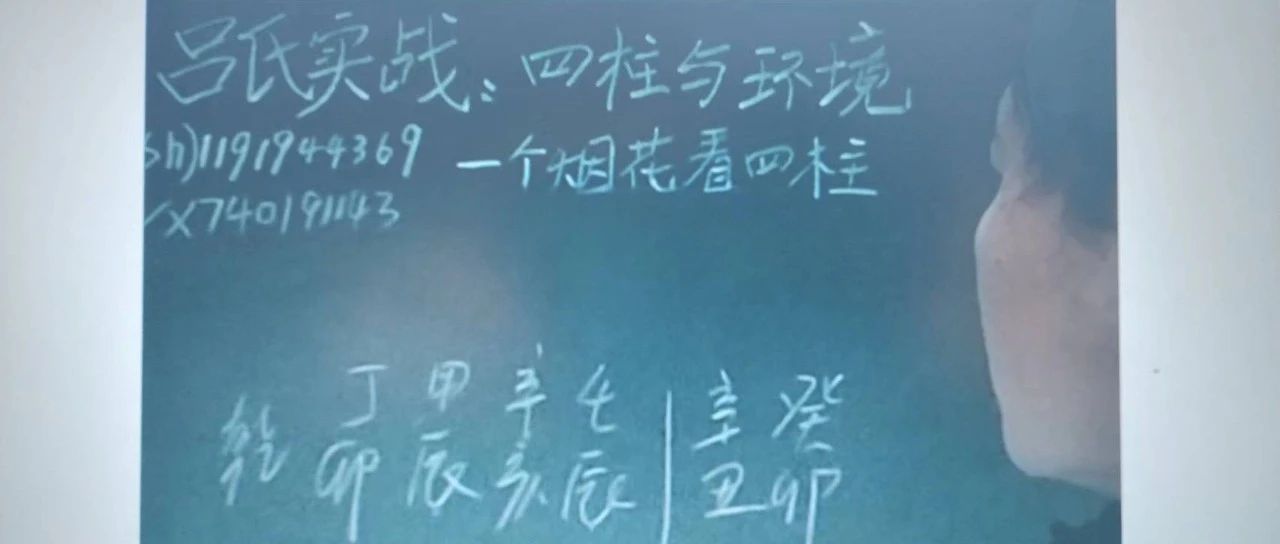 吕氏实战：四柱与环境
sh)1191944369 一个烟花看四柱
VX740191143
丁甲辛壬 辛癸
乾 卯辰亥辰 丑卯